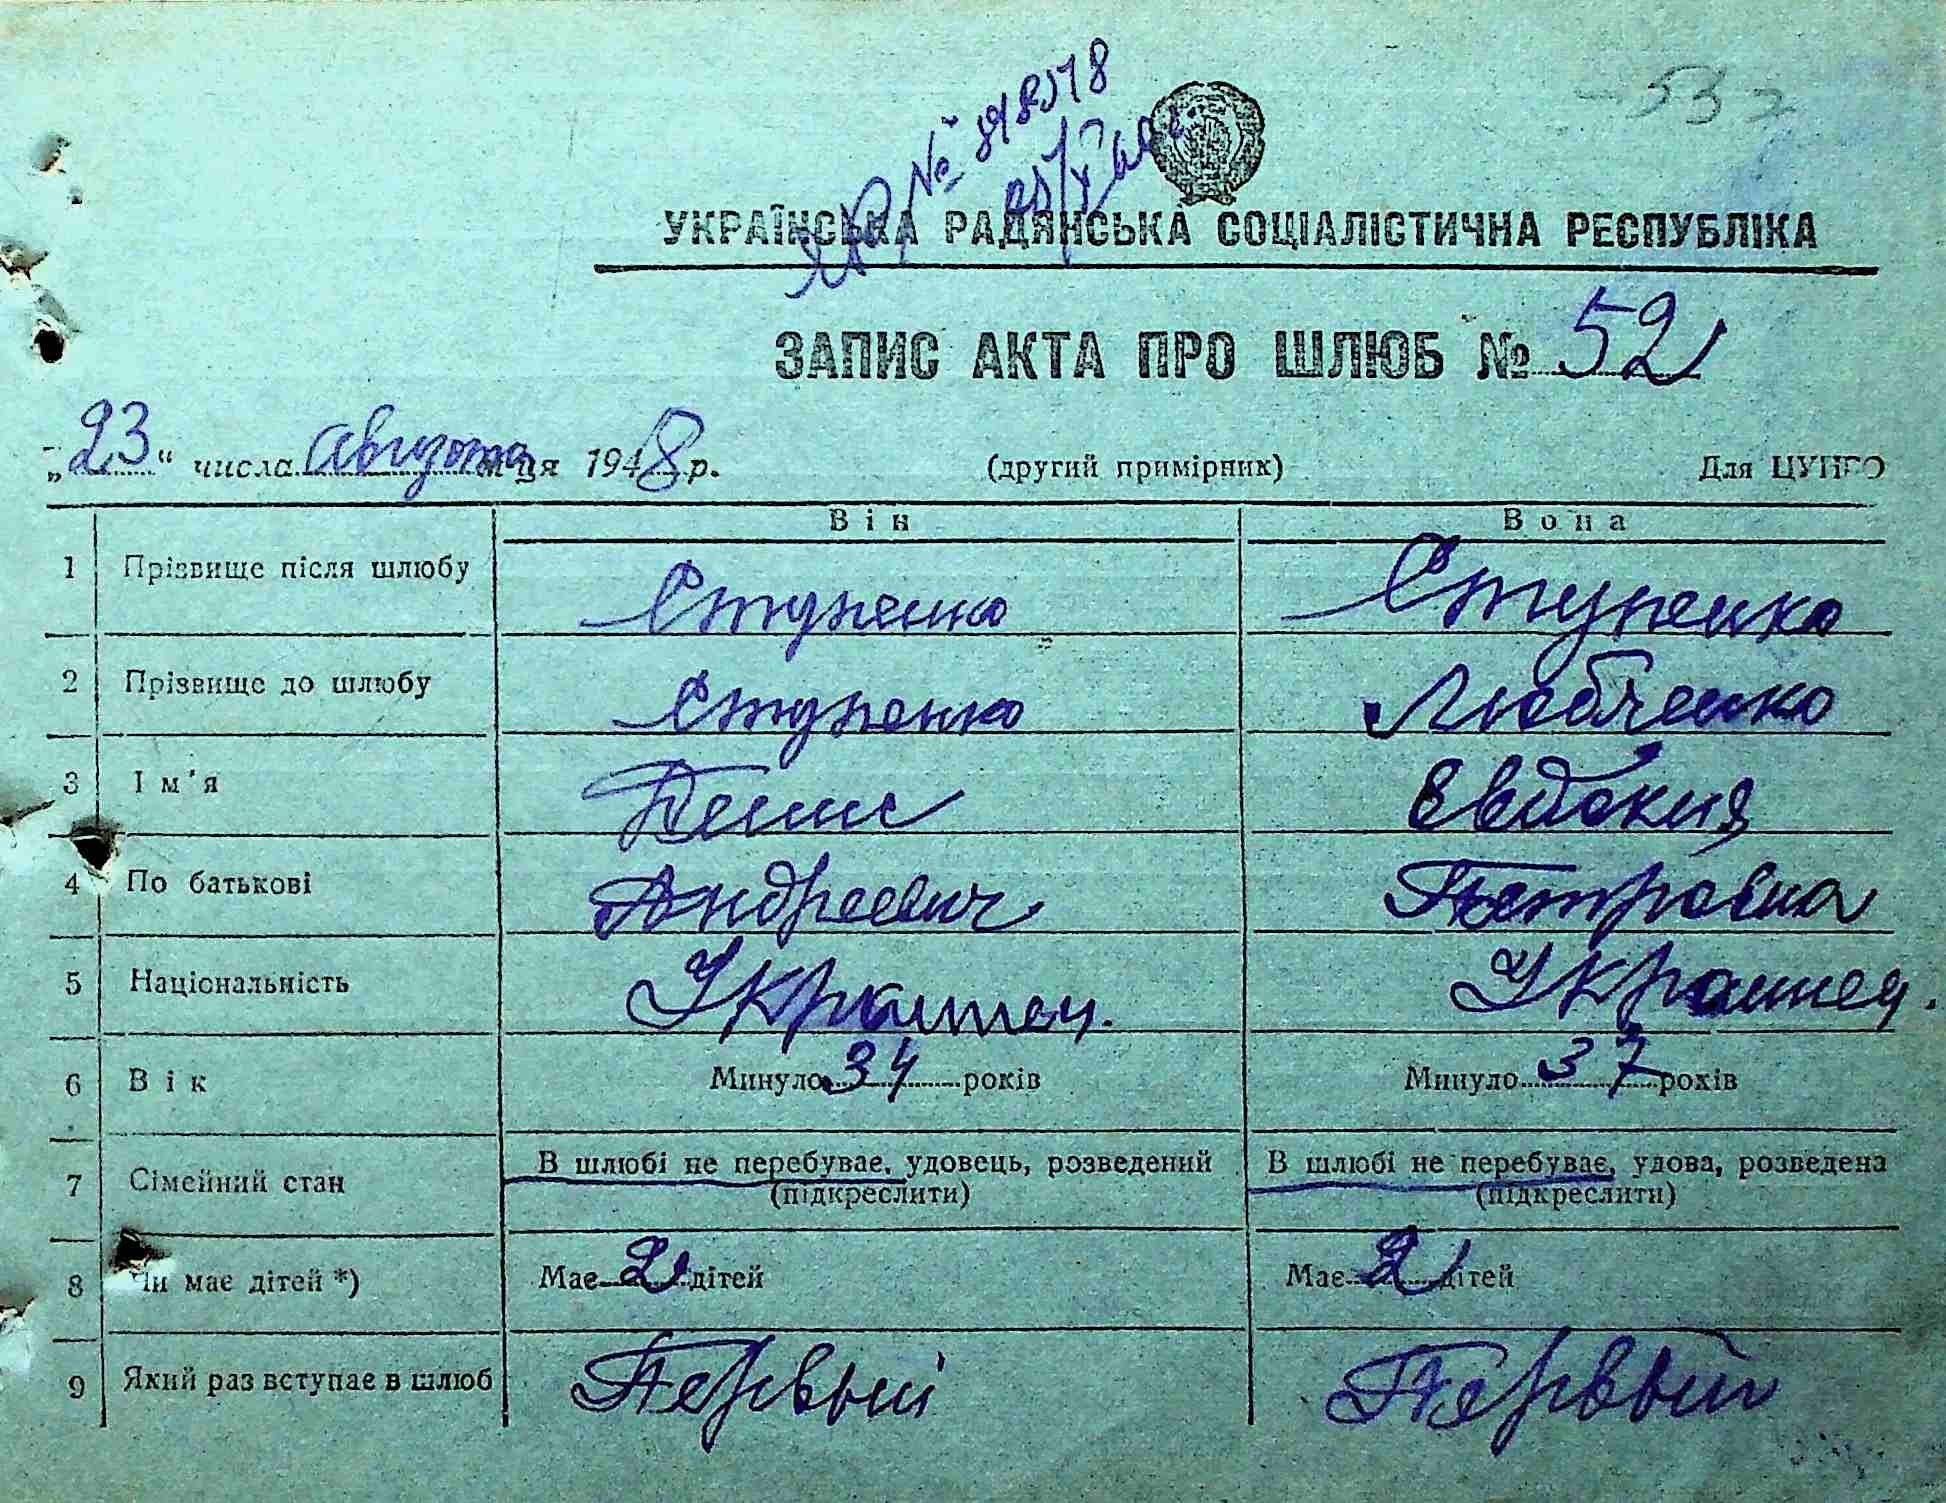 ЯР № 898578
УКРАЇНСЬКА РАДЯНСЬКА СОЦІАЛІСТИЧНА РЕСПУБЛІКА
ЗАПИС АКТА ПРО ШЛЮБ № 52
„23“ числа августа м-ця 1948 р. (другий примірник) Для ЦУНГО
Він Вона
1 Прізвище після шлюбу Ступенко Ступенко
2 Прізвище до шлюбу Ступенко Любченко
3 Ім'я Денис Евдокия
4 По батькові Андреевич Петровна
5 Національність Украинец. Украинец.
6 Вік Минуло 34 років Минуло 37 років
7 Сімейний стан В шлюбі не перебуває, удовець, розведений В шлюбі не перебуває, удова, розведена
(підкреслити) (підкреслити)
8 Чи має дітей *) Має 2 дітей Має 2 дітей
9 Який раз вступає в шлюб Первый Первый